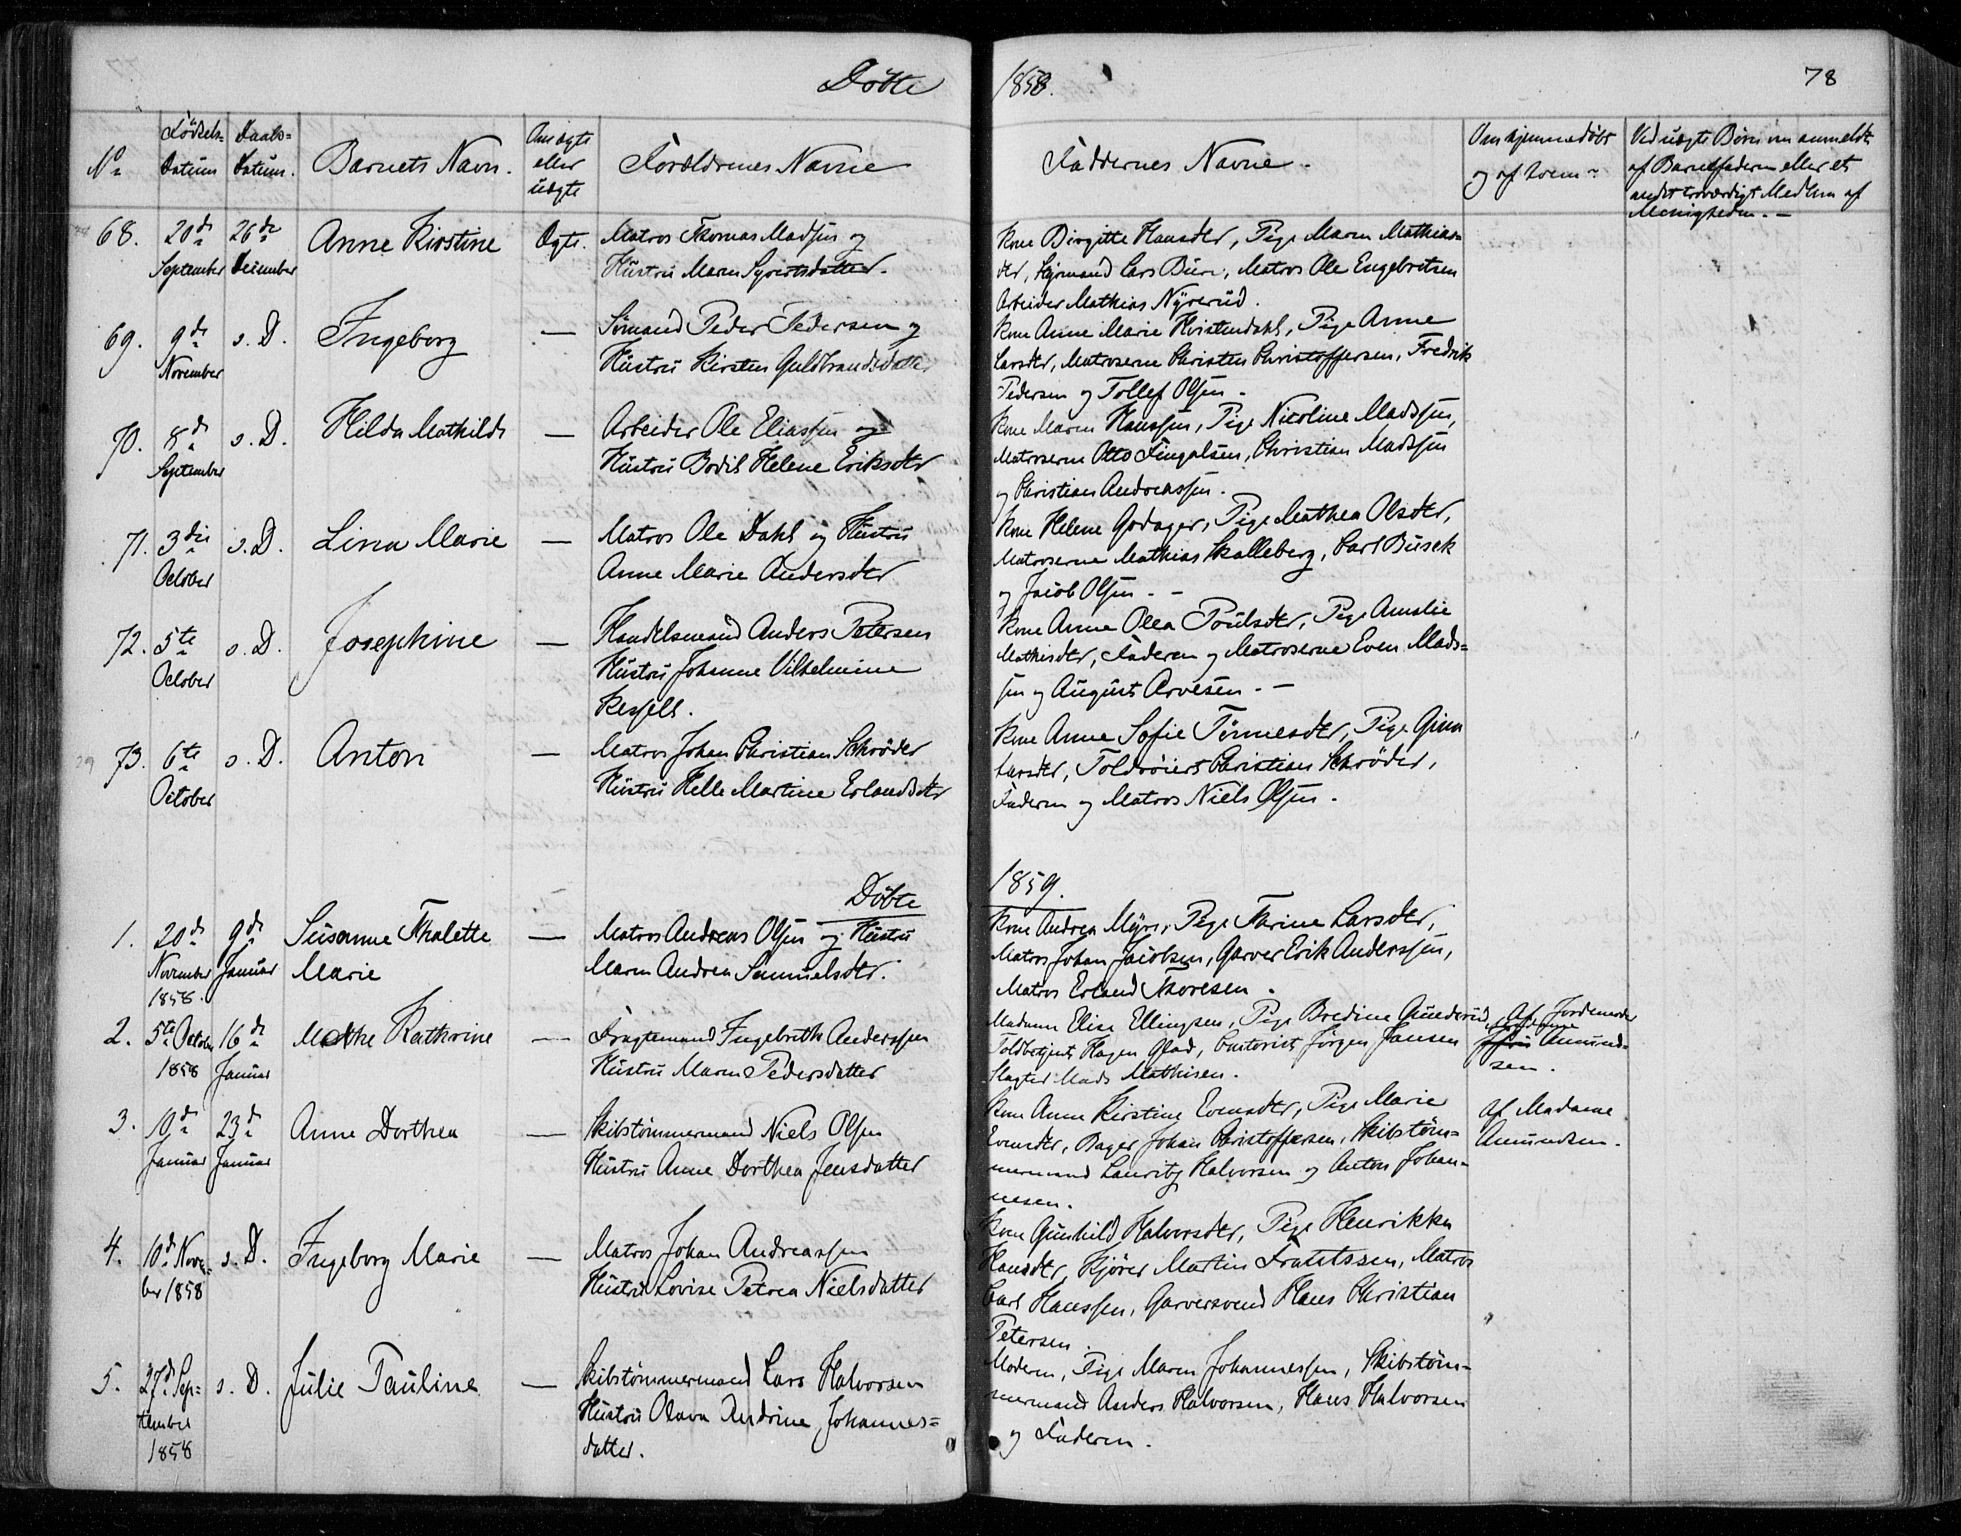 Döbte 1858. 78
No Födsels-Datum Daabs-Datum. Barnets Navn. Om ægte eller uægte Forældrenes Navne Faddernes Navne - Om hjemmedöbt og af hvem - Ved uægte Börn om anmeldt af Barnefaderen eller et andet troværdigt Medlem af Menigheden. -
68. 20de September 26de December Anne Kirstine Ægte. Matros Thomas Madsen og
Hustru Maren Syvertsdatter.
Kone Birgitte Hansdtr, Pige Maren Mathias-
dtr, Styrmand Lars Bure, Matros Ole Engebretsen
Arbeider Mathias Nÿrerud.
69. 9de November s. D. Ingeborg — Sömand Peder Pedersen og
Hustru Kirsten Guldbrandsdatter
Kone Anne Marie Hvistendahl, Pige Anne
Larsdtr, Matroserne Christen Christoffersen, Fredrik
Pedersen og Tollef Olsen -
70. 8de September s. D. Hilda Mathilde — Arbeider Ole Eliassen og
Hustru Bodil Helene Eriksdtr
Kone Maren Hanssen, Pige Nicoline Madssen,
Matroserne Otto Fingalsen, Christian Madssen
og Christian Andreassen.
71. 3die October s. D. Lina Marie — Matros Ole Dahl og Hustru
Anne Marie Andersdtr
Kone Helene Godager, Pige Mathea Olsdtr,
Matroserne Mathias Skalleberg, Carl Busck
og Jacob Olsen. -
72. 5te October s. D. Josephine — Handelsmand Anders Petersen
Hustru Johanne Vilhelmine
Kesfelt.
Kone Anne Olea Poulsdtr, Pige Amalie
Mathisdtr, Faderen og Matroserne Even Mads-
sen og August Arvesen. -
73. 6te October s. D. Anton — Matros Johan Christian Schröder
Hustru Helle Martine Erlandsdtr
Kone Anne Sofie Tönnesdtr, Pige Gina
Larsdtr, Toldröiert Christian Schröder,
Faderen og Matros Niels Olsen.
Döbte 1859.
1. 20de November 1858. 9de Januar Susanne Thalette
Marie — Matros Andreas Olsen og Hustru
Maren Andrea Samuelsdtr.
Kone Andrea Mÿre, Pige Karine Larsdtr,
Matros Johan Jacobsen, Garver Erik Anderssen,
Matros Erland Thoresen.
2. 5te October 1858 16de Januar Mathe Kathrine — Fragtemand Ingebreth Anderssen
Hustru Maren Pedersdatter
Madame Elise Ellingsen, Pige Bredine Gunderud,
Toldbetjent Hagen Glad, Contorist Jörgen Jansen
Slagter Mads Mathisen.
Af Jordemoder
Madame Amund-
sen.
3. 10de Januar 23de Januar Anne Dorthea — Skibstömmermand Niels Olsen
Hustru Anne Dorthea Jensdatter
Kone Anne Kirstine Evensdtr, Pige Marie
Evensdtr, Bager Johan Christoffersen, Skibstöm-
mermand Lauritz Halvorsen og Anton Johan-
nesen.
Af Madame
Amundsen.
4. 10de Novem-
ber 1858 s. D. Ingeborg Marie — Matros Johan Andreassen
Hustru Lovise Petrea Nielsdatter
Kone Gunhild Halvorsdtr, Pige Henrikke
Hansdtr, Kjörer Martin Frantssen, Matros
Carl Hanssen, Garversvend Hans Christian
Petersen.
5. 27de Sep-
tember
1858 s. D. Julie Pauline — Skibstömmermand Lars Halvorsen
Hustru Olava Andrine Johannes-
datter.
Moderen, Pige Maren Johannessen, Skibstöm-
mermand Anders Halvorsen, Hans Halvorsen
og Faderen.